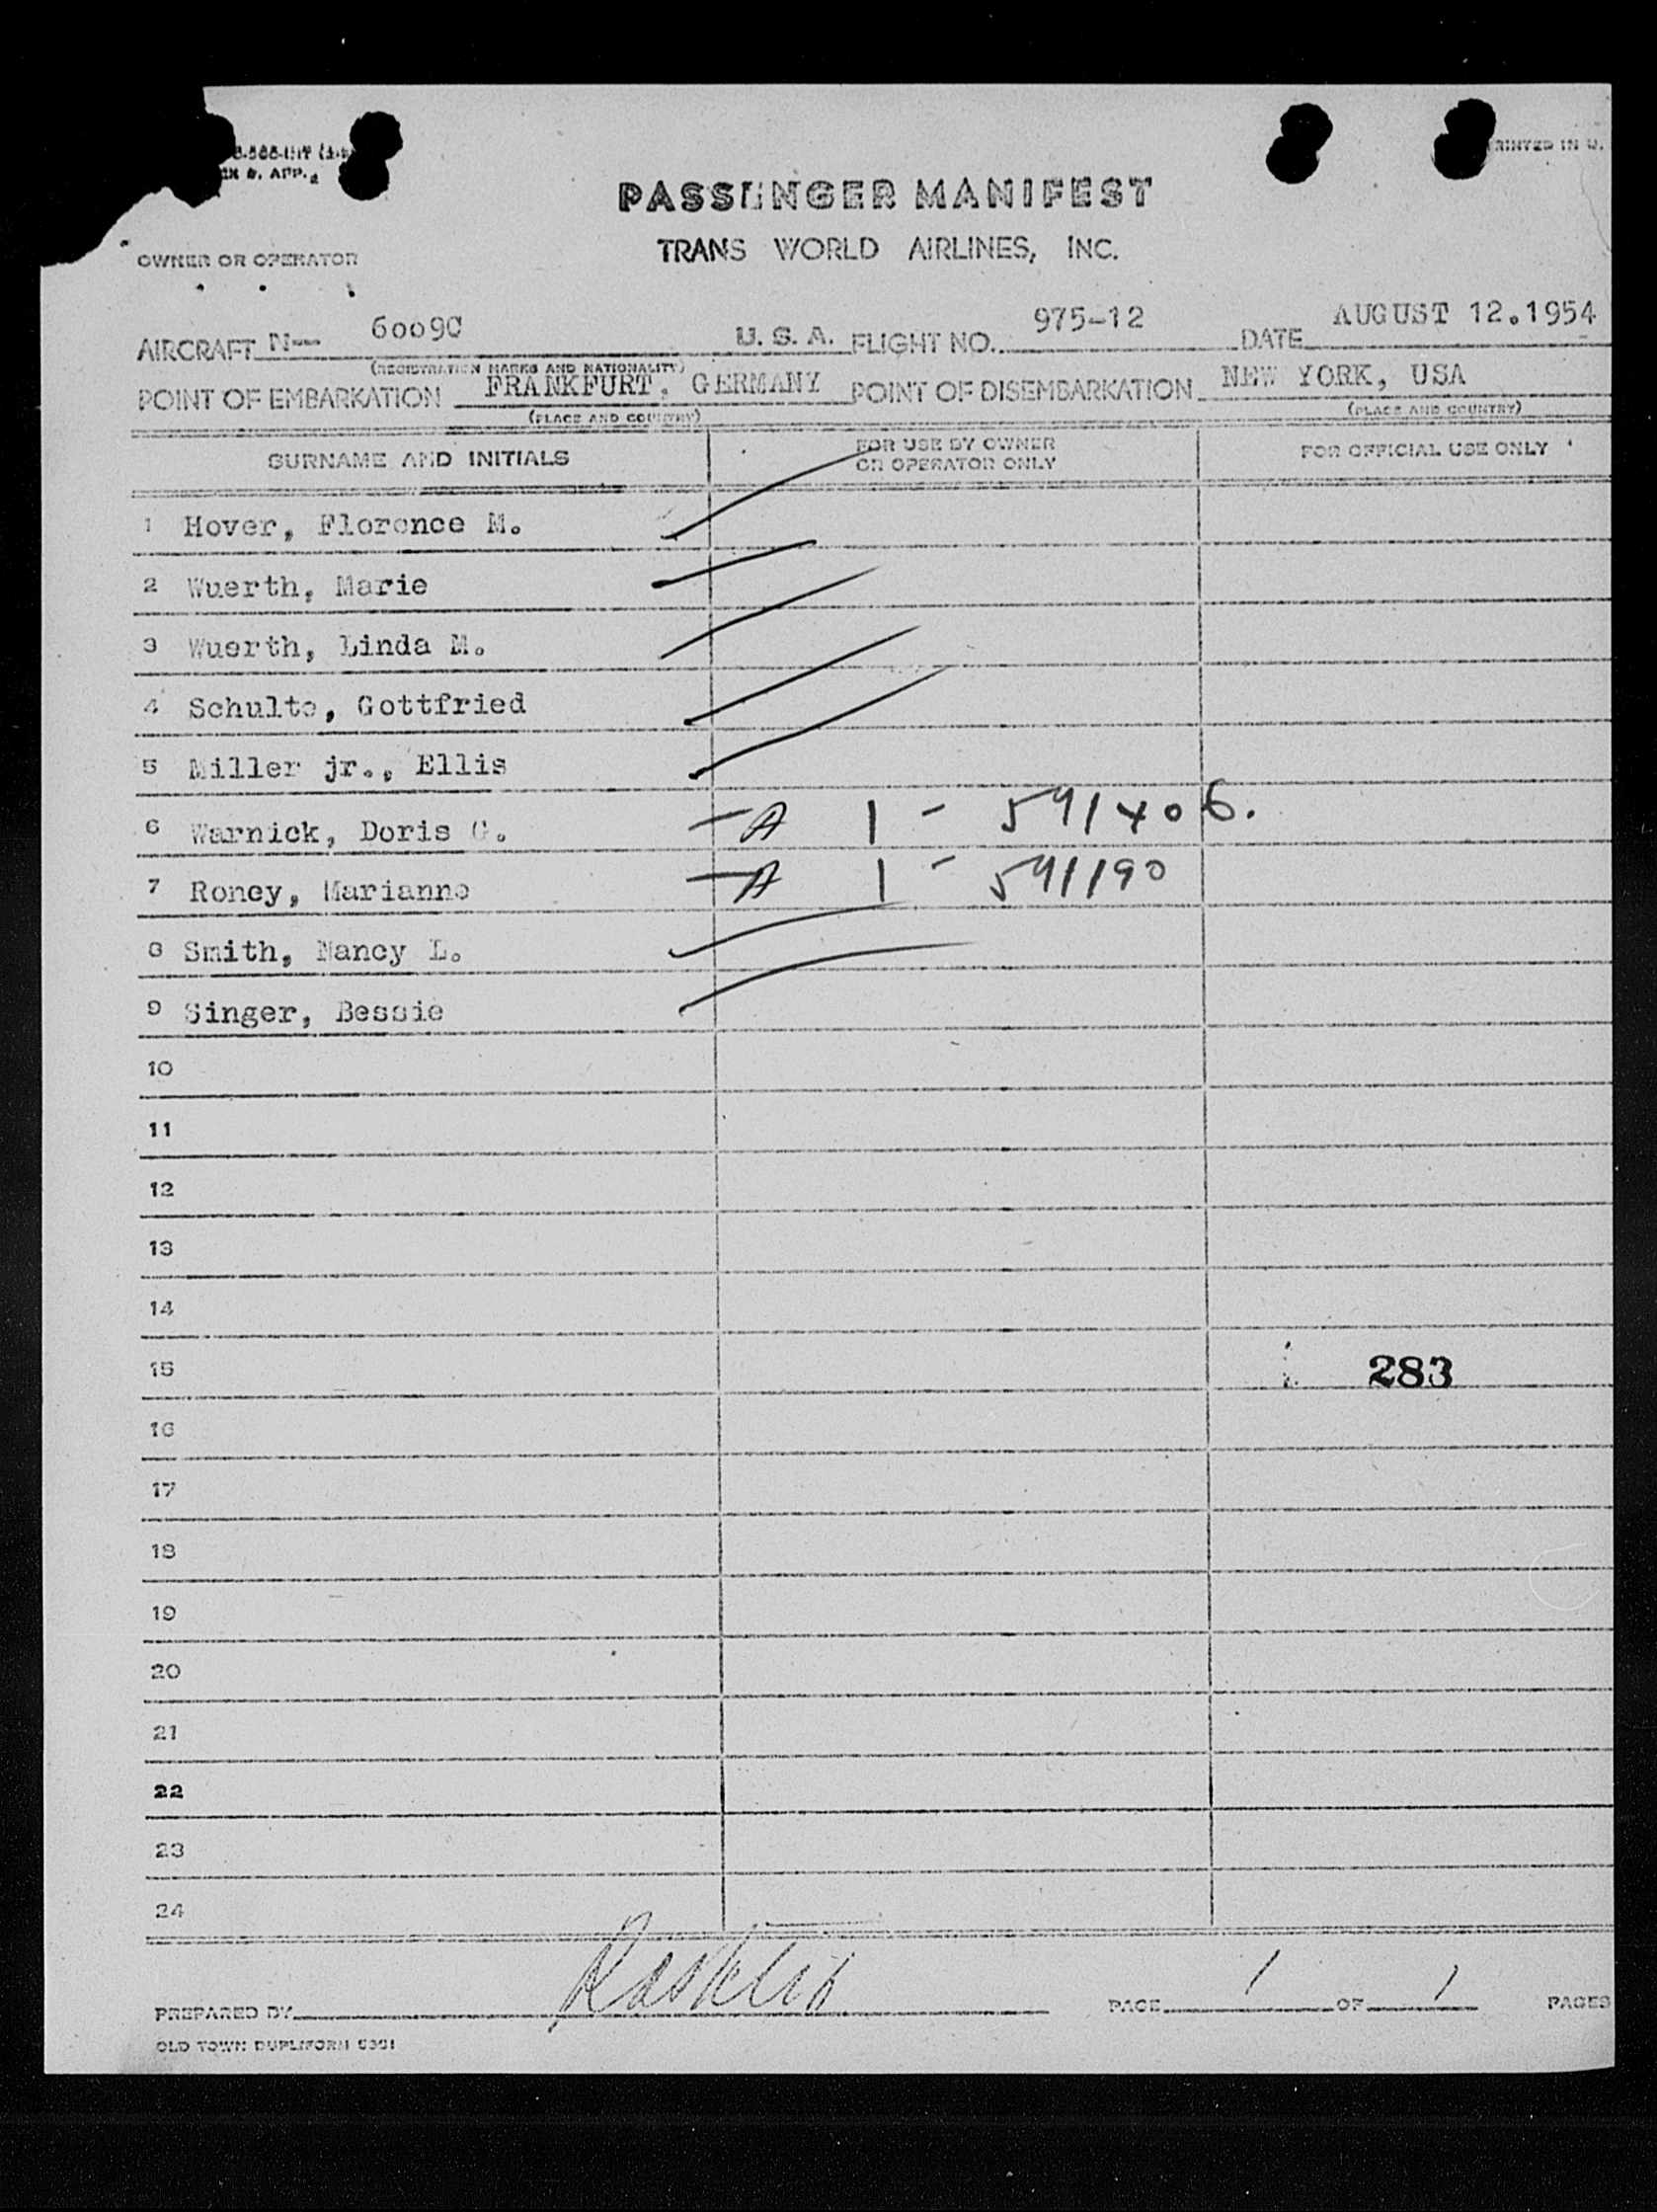 PRINTED IN U.
PASSENGER MANIFEST
TRANS WORLD AIRLINES, INC.
OWNER OR OPERATOR
AIRCRAFT N-- 6009C U. S. A. FLIGHT NO. 975-12 DATE AUGUST 12.1954
(REGISTRATION MARKS AND NATIONALITY)
POINT OF EMBARKATION FRANKFURT, GERMANY POINT OF DISEMBARKATION NEW YORK, USA
(PLACE AND COUNTRY) (PLACE AND COUNTRY)
SURNAME AND INITIALS FOR USE BY OWNER OR OPERATOR ONLY FOR OFFICIAL USE ONLY
1 Hover, Florence M.
2 Wuerth, Marie
3 Wuerth, Linda M.
4 Schulte, Gottfried
5 Miller jr., Ellis
6 Warnick, Doris G. - A 1 - 591406.
7 Roney, Marianne - A 1 - 591190
8 Smith, Nancy L.
9 Singer, Bessie
10
11
12
13
14
15 283
16
17
18
19
20
21
22
23
24
PREPARED BY PAGE 1 OF 1 PAGES
OLD TOWN DUPLIFORM